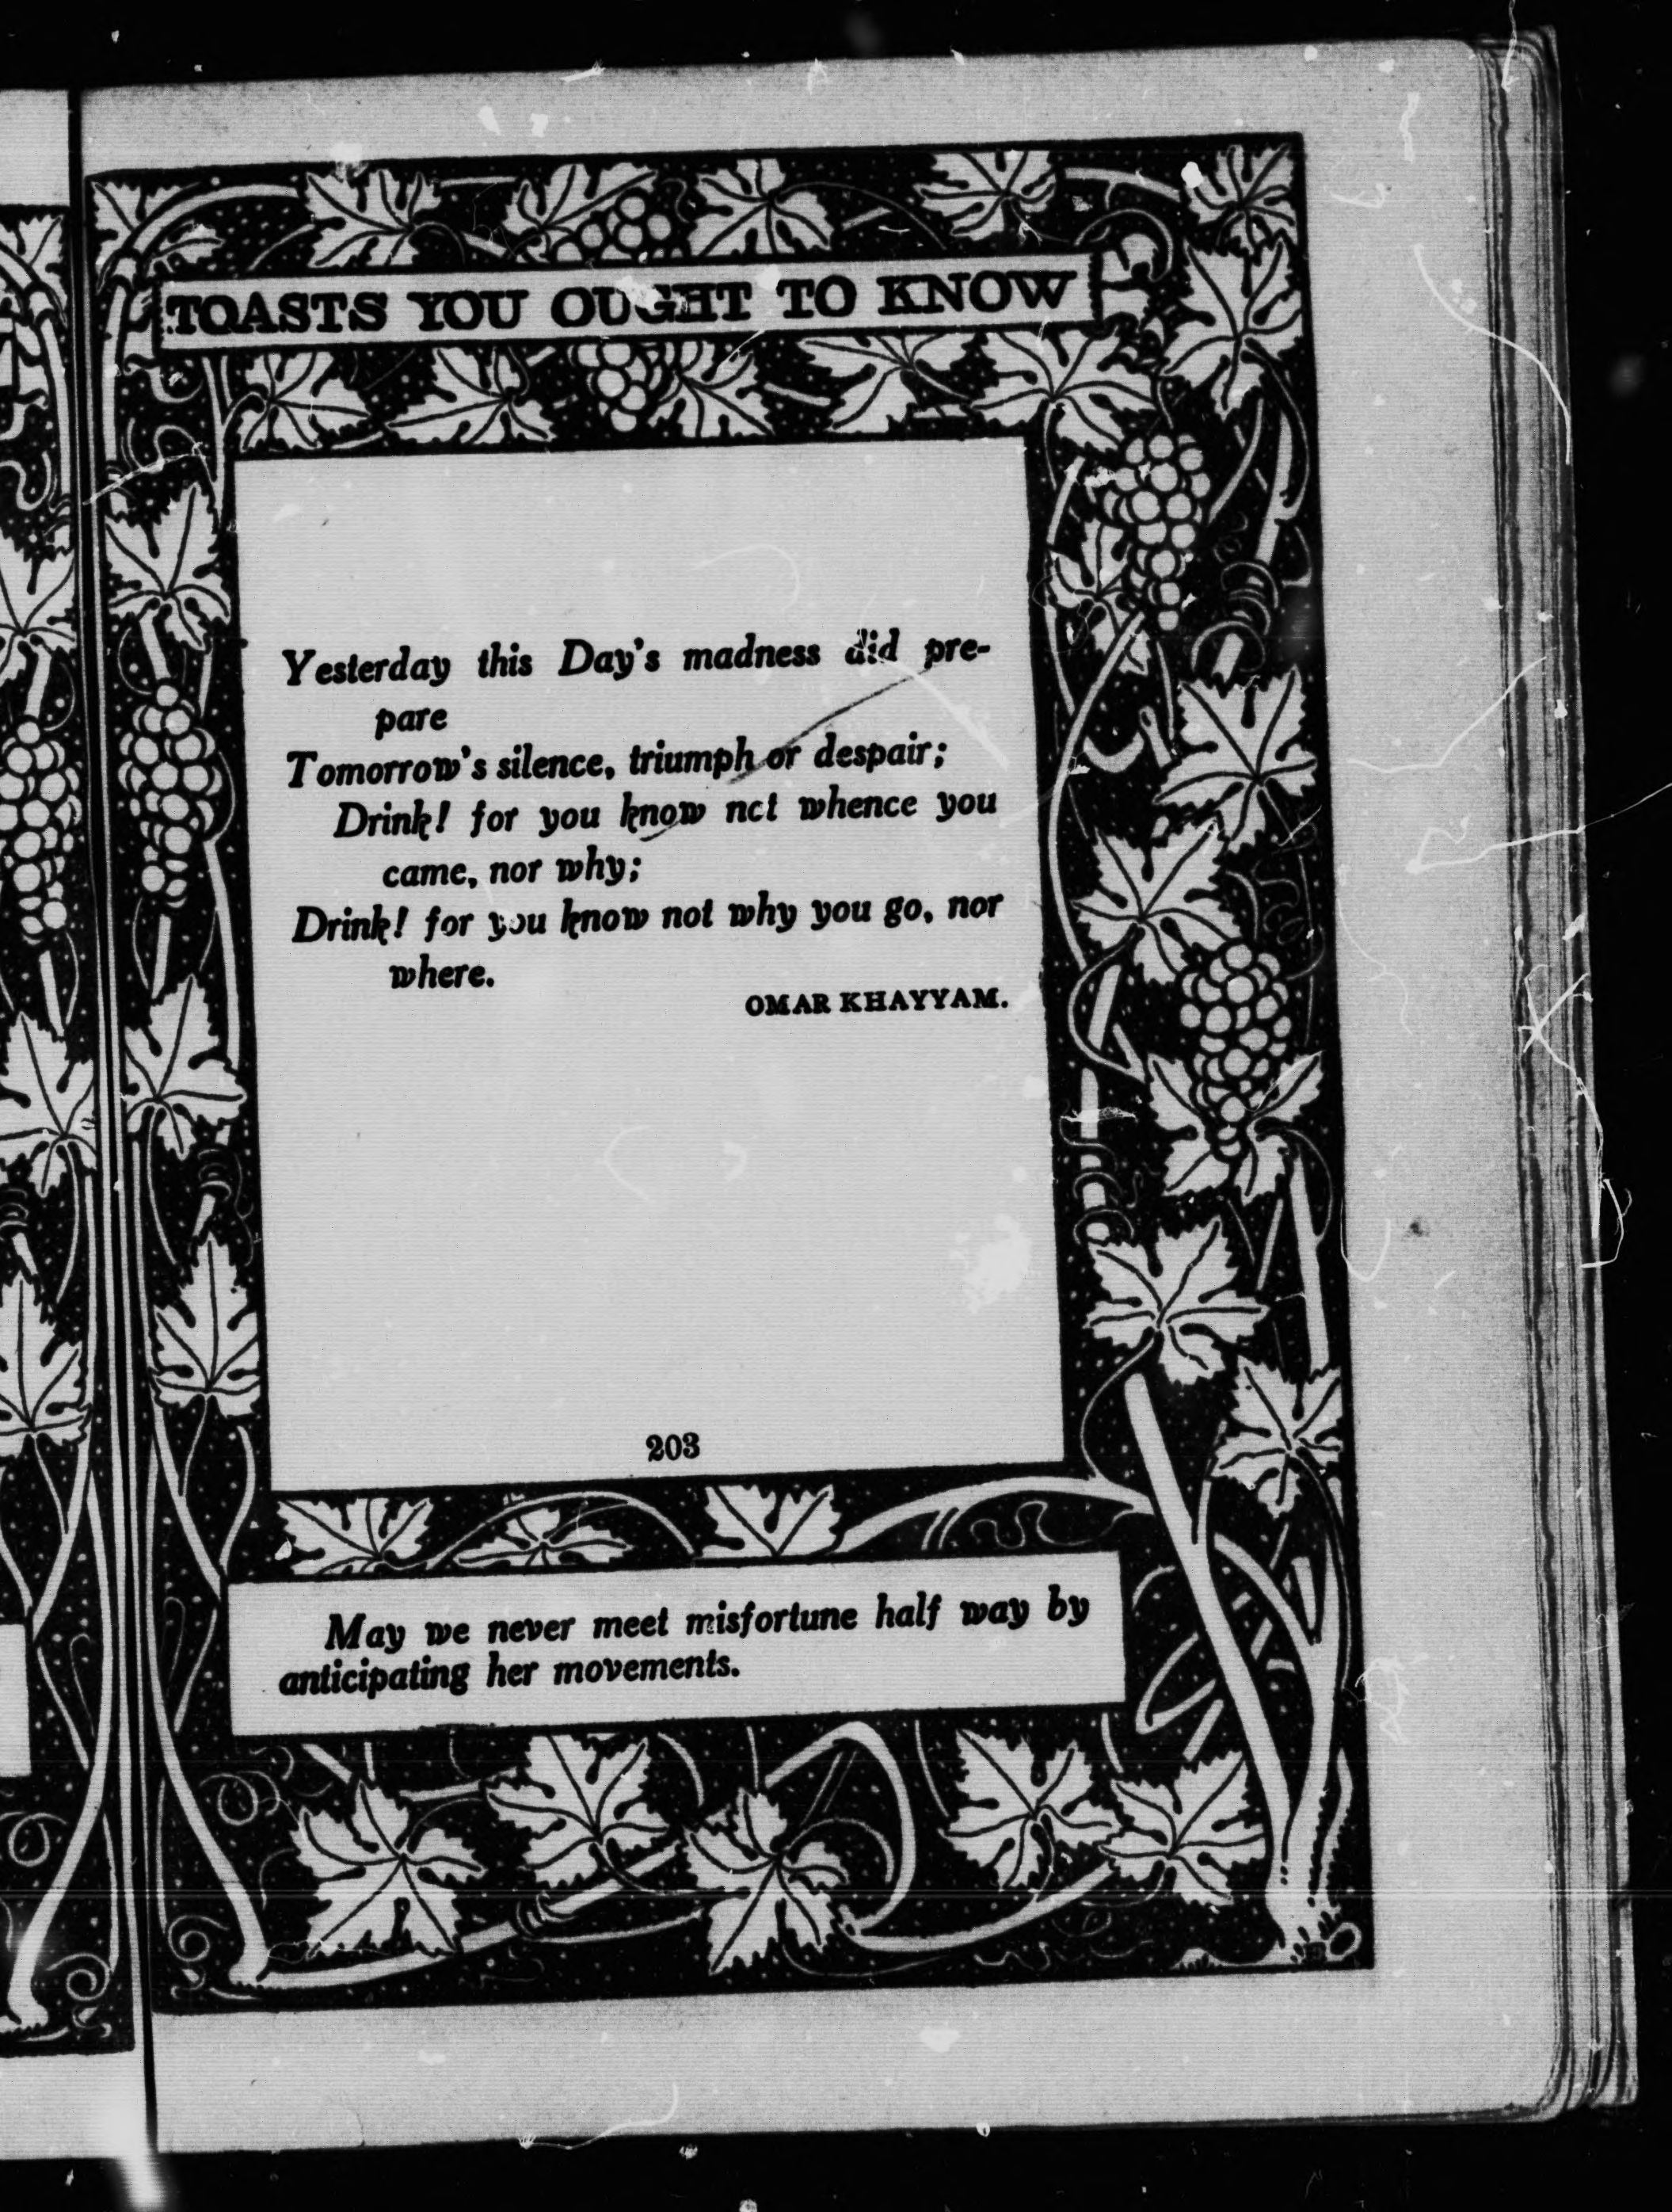 TOASTS YOU OUGHT TO KNOW
Yesterday this Day's madness did pre-
pare
Tomorrow's silence, triumph or despair;
Drink! for you know not whence you
came, nor why;
Drink! for you know not why you go, nor
where.
OMAR KHAYYAM.
203
May we never meet misfortune half way by
anticipating her movements.